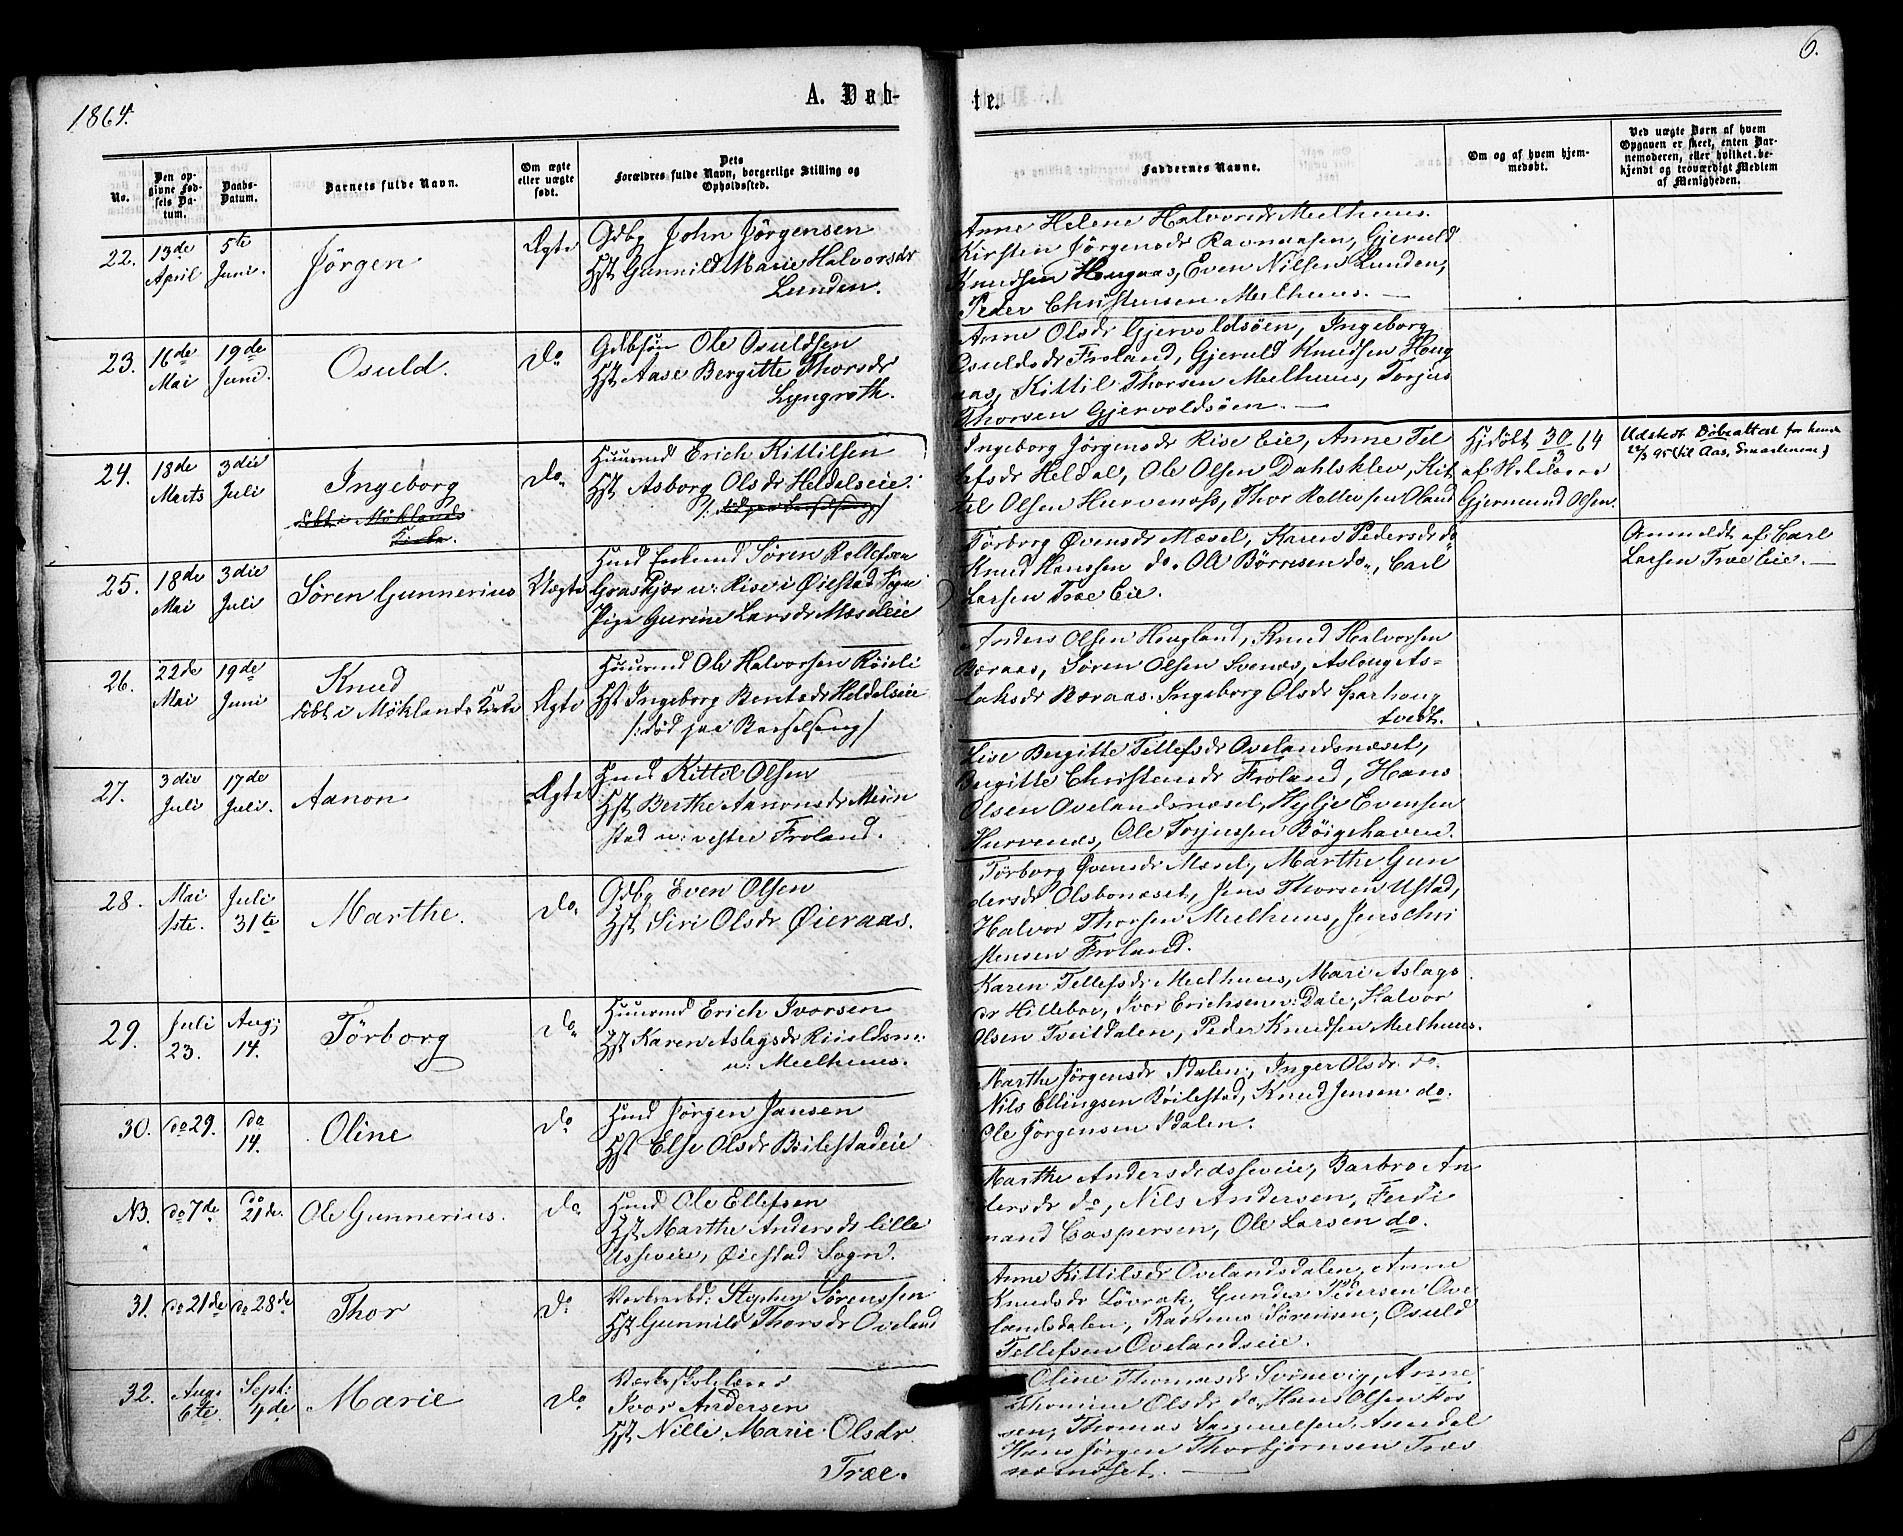 1864.
A. Døb-
te.
6.
No.
Den op-
givne Fød-
sels Da-
tum.
Daabs-
Datum.
Barnets fulde Navn.
Om ægte
eller uægte
født.
Dets
Forældres fulde Navn, borgerlige Stilling og
Opholdssted.
Faddernes Navne.
Om og af hvem hjem-
medøbt.
Ved uægte Børn af hvem
Opgaven er skeet, enten Bar-
nemoderen, eller hvilket be-
kjendt og troværdigt Medlem
af Menigheden.
22.
13de
April
5te
Juni.
Jörgen
Ægte
Gdbg John Jörgensen
Hst Gunnild Marie Halvorsdr
Lunden.
Anne Helene Halvorsdr Mælhuus.
Kirsten Jörgensdr Ravnaasen, Gjeruld
Knudsen Hougaas, Even Nilsen Lunden,
Peder Christensen Mælhuus. —
23.
16de
Mai
19de
Juni.
Osuld.
do
Gdbsön Ole Osuldsen
Hst Aase Bergitte Thorsdr
Lyngroth.
Anne Olsdr Gjervoldsöen, Ingeborg
Osuldsdr Froland, Gjeruld Knudsen Houg
aas, Kittil Thorsen Mælhuus, Torjus
Thorsen Gjervoldsöen. —
24.
18de
Marts
3die
Juli
Ingeborg
döbt i Möklands
Kirke.
do.
Huusmd Erich Kittilsen
Hst Asborg Olsdr Heldalseie.
Ingeborg Jörgensdr Rise Eie, Anne Tel
lefsdr Heldal, Ole Olsen Dahlsklev, Kit
til Olsen Hurvenæs, Thor Rollevsen Oland
Hjdöbt 30/3 64
af
Gjermund Olsen.
Udstedt Döbeattest for hende
25.
18de
Mai
3die
Juli
Sören Gunnerius
Uægte
Hmd Enkemd Sören Rollefsen
Graskjær u: Rise i Öiestad Sogn
Pige Gurine Larsdr Mæseleie
Törborg Övensdr Mæsel, Karen Pedersdr do
Knud Hanssen do. Ole Börresen do., Carl
Larsen Træ Eie.
Anmeldt af Carl
Larsen Træ Eie. —
26.
22de
Mai
19de
Juni
Knud
döbt i Möklands Kirke
Ægte
Huusmd Ole Halvorsen Röisli
Hst Ingeborg Bentsdr Heldalseie
/: död paa Barselseng /
Anders Olsen Hougland, Knud Halvorsen
Bæraas, Sören Olsen Svenæs, Aslaug As-
laksdr Bæraas. Ingeborg Olsdr Sparhoug
tvedt.
27.
3die
Juli
17de
Juli.
Aanon
Ægte
Hmd Kittil Olsen
Hst Berthe Aanonsdr Messn
stad u: vestre Froland.
Lise Bergitte Tellefsdr Ovelandsnæset,
Birgitte Christensdr Froland, Hans
Olsen Ovelandsnæset, Hylje Evensen
Hurvenæs, Ole Torjussen Böigehaven.
28.
Mai
1ste.
Juli
31te
Marthe.
do.
Gdbg Even Olsen
Hst Siri Olsdr Öieraas.
Törborg Övensdr Mæsel, Marthe Gun
dersdr Olsbonæset, Jens Thorsen Ustad,
Halvor Thorsen Mælhuus, Jens Chri
stensen Froland.
29.
Juli
23.
Aug;
14.
Törborg
do.
Huusmd Erich Ivorsen
Hst Karen Aslagsdr
u: Mælhuus.
Karen Tellefsdr Mælhuus, Mari Aslags
dr Hilleboe, Ivor Erichsen u: Dale, Halvor
Olsen Tveitdalen, Peder Knudsen Mælhuus.
30.
do 29.
do
14.
Oline
do
Hmd Jörgen Jansen
Hst Else Olsdr Böilestadeie
Marthe Jörgensdr Ydalen, Inger Olsdr do.
Nils Ellingsen Böilestad, Knud Jensen do.
Ole Jörgensen Ydalen.
NB.
do 7de.
do
21de.
Ole Gunnerius.
do
Hmd Ole Ellefsen
Hst Marthe Andersdr lille
Asseveie, Öiestad Sogn.
Marthe Andersdr Asseveie, Barbro An
dersdr do, Nils Andersen, Ferdi
nand Caspersen, Ole Larsen do.
31.
do 21de
do 28de
Thor
do.
Værkarbd: Stephen Sörenssen
Hst Gunnild Thorsdr Oveland
Anne Kittilsdr Ovelandsdalen, Anne
Knudsdr Lövrak, Gunder Pedersen Ove
landsdalen, Rasmus Sörensen, Osuld
Tellefsen Ovelandseie.
32.
Aug.
6te.
Sept:
4de
Marie
do
Værkskolelærer
Ivor Andersen
Hst Nille Marie Olsdr
Træe.
Oline Thomasdr Svinevig, Anne
Thomine Olsdr do, Hans Olsen Fos
sen, Thomas Samuelsen Arendal
Hans Jörgen Thorbjörnsen Træs
næset. —